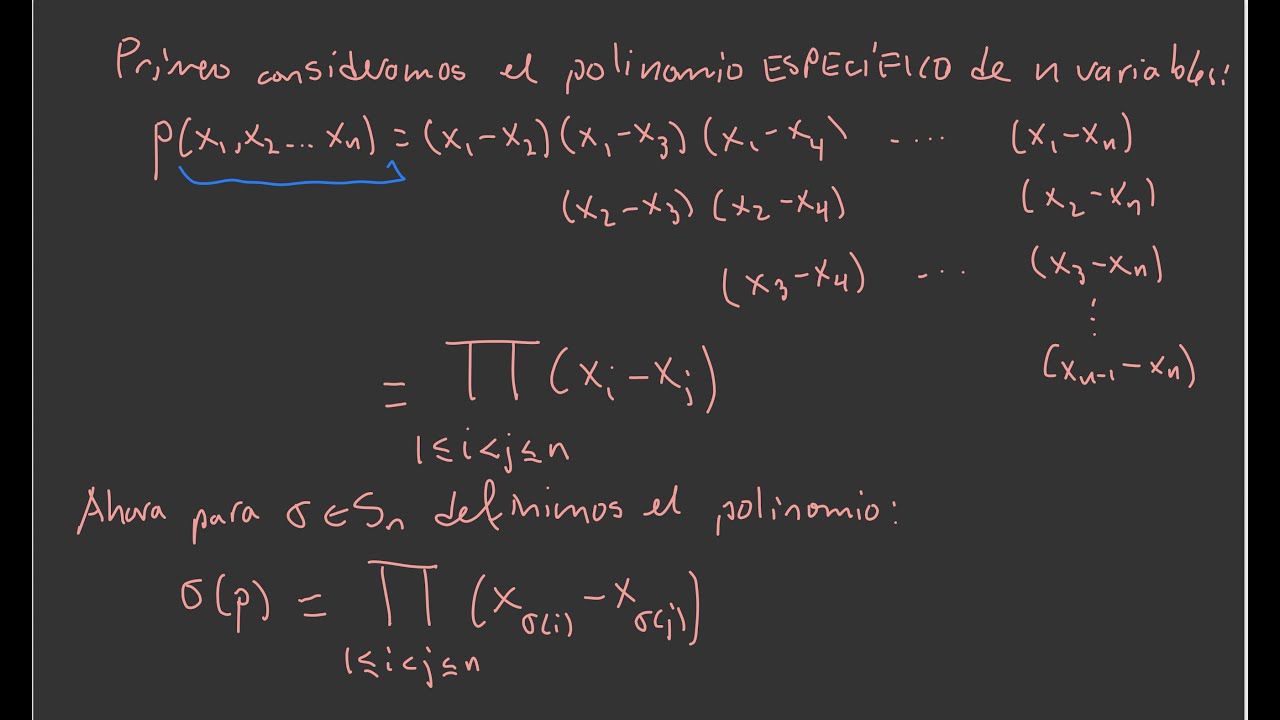 Primero consideramos el polinomio ESPECÍFICO de n variables:
p(x₁,x₂...xₙ) = (x₁-x₂)(x₁-x₃)(x₁-x₄) .... (x₁-xₙ)
(x₂-x₃)(x₂-x₄) (x₂-xₙ)
(x₃-x₄) ... (x₃-xₙ)
⋮
(xₙ₋₁-xₙ)
= ∏ (xᵢ-xⱼ)
1≤i<j≤n
Ahora para σ∈Sₙ definimos el polinomio:
σ(p) = ∏ (x_σ(i) - x_σ(j))
1≤i<j≤n